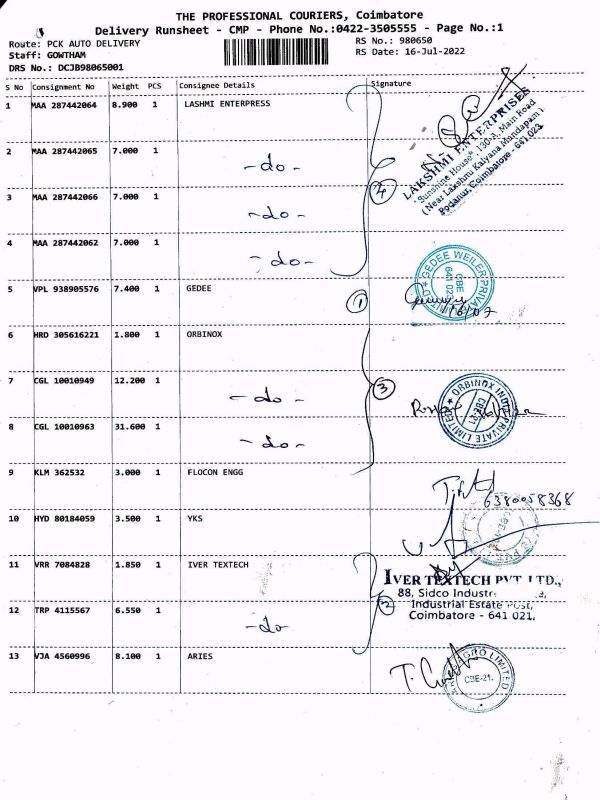 THE PROFESSIONAL COURIERS, Coimbatore
Delivery Runsheet - CMP - Phone No.:0422-3505555 - Page No.:1
Route: PCK AUTO DELIVERY
RS No.: 980650
Staff: GOWTHAM
RS Date: 16-Jul-2022
DRS No.: DCJB98065001
S No Consignment No Weight PCS Consignee Details Signature
1 MAA 287442064 8.900 1 LASHMI ENTERPRESS
LAKSHMI ENTERPRISES
"Sunshine House", 130-A, Main Road
(Near Lakshmi Kalyana Mundapam)
Podanur, Coimbatore - 641 023.
2 MAA 287442065 7.000 1 -do-
3 MAA 287442066 7.000 1 -do-
4
4 MAA 287442062 7.000 1 -do-
GEDEE WEILER PRIVATE
CBE
641 02
5 VPL 938905576 7.400 1 GEDEE 1
16/07
6 HRD 305616221 1.800 1 ORBINOX
7 CGL 10010949 12.200 1 -do- 3
ORBINOX INDIA PRIVATE LIMITED
CBE-21
8 CGL 10010963 31.600 1 -do-
9 KLM 362532 3.000 1 FLOCON ENGG
6380058368
10 HYD 80184059 3.500 1 YKS
11 VRR 7084828 1.850 1 IVER TEXTECH
IVER TEXTECH PVT. LTD.,
88, Sidco Industr
Industrial Estate Post,
Coimbatore - 641 021.
2
12 TRP 4115567 6.550 1 -do-
13 VJA 4560996 8.100 1 ARIES
AGRO LIMITED
CBE-21.